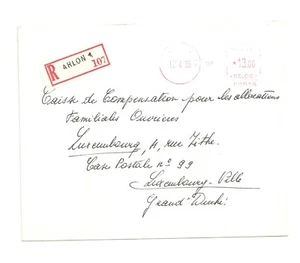 R
ARLON 1
107
13.00
Caisse de Compensation pour les allocations
Familiales Ouvrières
Luxembourg, 4, rue Zithe.
Case Postale nº 99
Luxembourg-Ville
Grand Duché